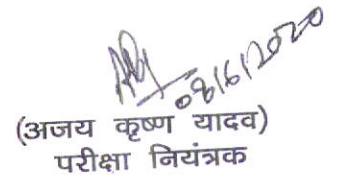 08/6/2020
(अजय कृष्ण यादव)
परीक्षा नियंत्रक